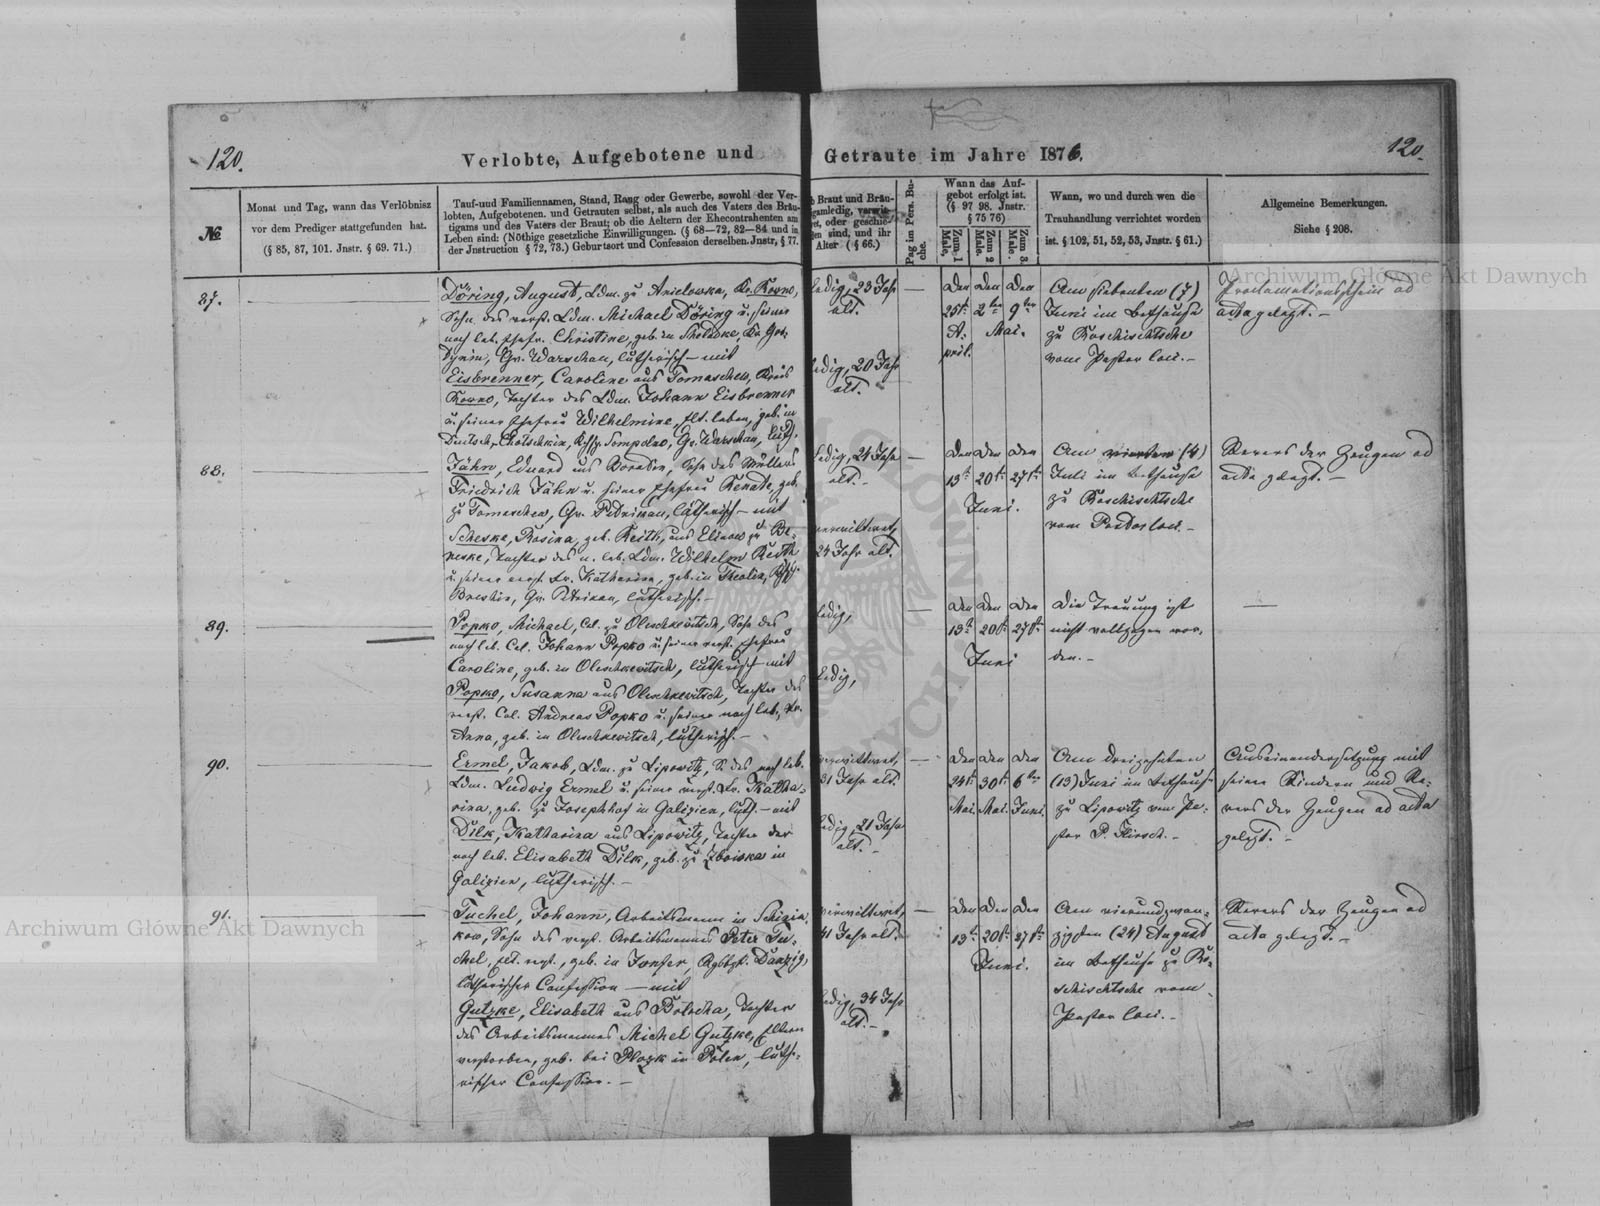 120.
Verlobte, Aufgebotene und Getraute im Jahre 1876.
120.
№
Monat und Tag, wann das Verlöbnisz
vor dem Prediger stattgefunden hat.
(§ 85, 87, 101. Jnstr. § 69. 71.)
Tauf-und Familiennamen, Stand, Rang oder Gewerbe, sowohl der Ver-
lobten, Aufgebotenen. und Getrauten selbst, als auch des Vaters des Bräu-
tigams und des Vaters der Braut; ob die Aeltern der Ehecontrahenten am
Leben sind: (Nöthige gesetzliche Einwilligungen. (§ 68—72, 82—84 und in
der Jnstruction § 72, 73.) Geburtsort und Confession derselben. Jnstr, § 77.
Braut und Bräu-
gam ledig, verwit-
oder geschie-
sind, und ihr
Alter (§ 66.)
Pag im Pers. Bu-
che.
Wann das Auf-
gebot erfolgt ist.
(§ 97 98. Jnstr.
§ 75 76)
Zum 1 Male.
Zum 2 Male.
Zum 3. Male.
Wann, wo und durch wen die
Trauhandlung verrichtet worden
ist. § 102, 51, 52, 53, Jnstr. § 61.)
Allgemeine Bemerkungen.
Siehe § 208.
87.
Döring, August, Ldm. zu Anielowka, Kr. Rovno,
Sohn des verst. Ldm. Michael Döring u. seiner
noch leb. Ehefr. Christine, geb. in
Gv. Warschau, lutherisch — mit
Eisbrenner, Caroline aus Tomaschew, Kreis
Rovno, Tochter des Ldm. Johann Eisbrenner
u. seiner Ehefrau Wilhelmine, Elt. leben, geb. in
Deutsch-Chotschkin, Sompolno, Gv. Warschau, luth.
ledig, 23 Jahr
alt.
ledig, 20 Jahr
alt.
den den den
25t. 2ten 9ten
A- Mai.
pril.
Am siebenten (7)
Juni im Bethause
zu Roschischtsche
vom Pastor loci. —
Proclamationsschein ad
acta gelegt. —
88.
Jähn, Eduard aus Sohn des Müllers
Friedrich Jähn u. seiner Ehefrau Renate, geb.
zu Tomaschew, Gv. Petrikau, lutherisch — mit
Scheske, Rosina, geb. Reith, aus Elinow zu Be-
reske, Tochter des n. leb. Ldm. Wilhelm Reith
u. seiner verst. Fr. Katharina, geb. in
Gv. Petrikau, lutherisch. —
ledig, 21 Jahr
alt. —
verwittwet,
24 Jahr alt.
den den den
13t. 20t. 27t.
Juni.
Am vierten (4)
Juli im Bethause
zu Roschischtsche
vom Pastor loci. —
Revers der Zeugen ad
acta gelegt. —
89.
Popko, Michael, Col. zu Oleschkewitsch, Sohn des
noch leb. Col. Johann Popko u. seiner verst. Ehefrau
Caroline, geb. in Oleschkewitsch, lutherisch — mit
Popko, Susanna aus Oleschkewitsch, Tochter des
verst. Col. Andreas Popko u. seiner noch leb. Fr.
Anna, geb. in Oleschkewitsch, lutherisch. —
ledig,
ledig,
den den den
13t. 20t. 27t.
Juni
Die Trauung ist
nicht vollzogen wor-
den. —
90.
Ermel, Jakob, Ldm. zu Lipowitz, S. des noch leb.
Ldm. Ludwig Ermel u. seiner verst. Fr. Katha-
rina, geb. zu Josephhof in Galizien, luth. — mit
Dilk, Katharina aus Lipowitz, Tochter der
noch leb. Elisabeth Dilk, geb. zu Zboiska in
Galizien, lutherisch. —
verwittwet,
31 Jahr alt.
ledig, 21 Jahr
alt. —
den den den
24t. 30t. 6ten
Mai. Mai. Juni.
Am dreizehnten
(13) Juni im Bethause
zu Lipowitz vom Pa-
stor P. Hirsch. —
Auseinandersetzung mit
seinen Kindern und Re-
vers der Zeugen ad acta
gelegt. —
91.
Tuchel, Johann, Arbeitsmann in
Sohn des verst. Arbeitsmannes Peter Tu-
chel, Elt. verst., geb. in Danzig,
lutherischer Confession — mit
Gutzke, Elisabeth aus Tochter
des Arbeitsmannes Michel Gutzke, Eltern
verstorben, geb. bei Plozk in Polen, luthe-
rischer Confession. —
verwittwet,
41 Jahr alt. —
ledig, 34 Jahr
alt. —
den den den
13t. 20t. 27t.
Juni.
Am vierundzwan-
zigsten (24) August
im Bethause zu Ro-
schischtsche vom
Pastor loci. —
Revers der Zeugen ad
acta gelegt. —
Archiwum Główne Akt Dawnych
Archiwum Główne Akt Dawnych